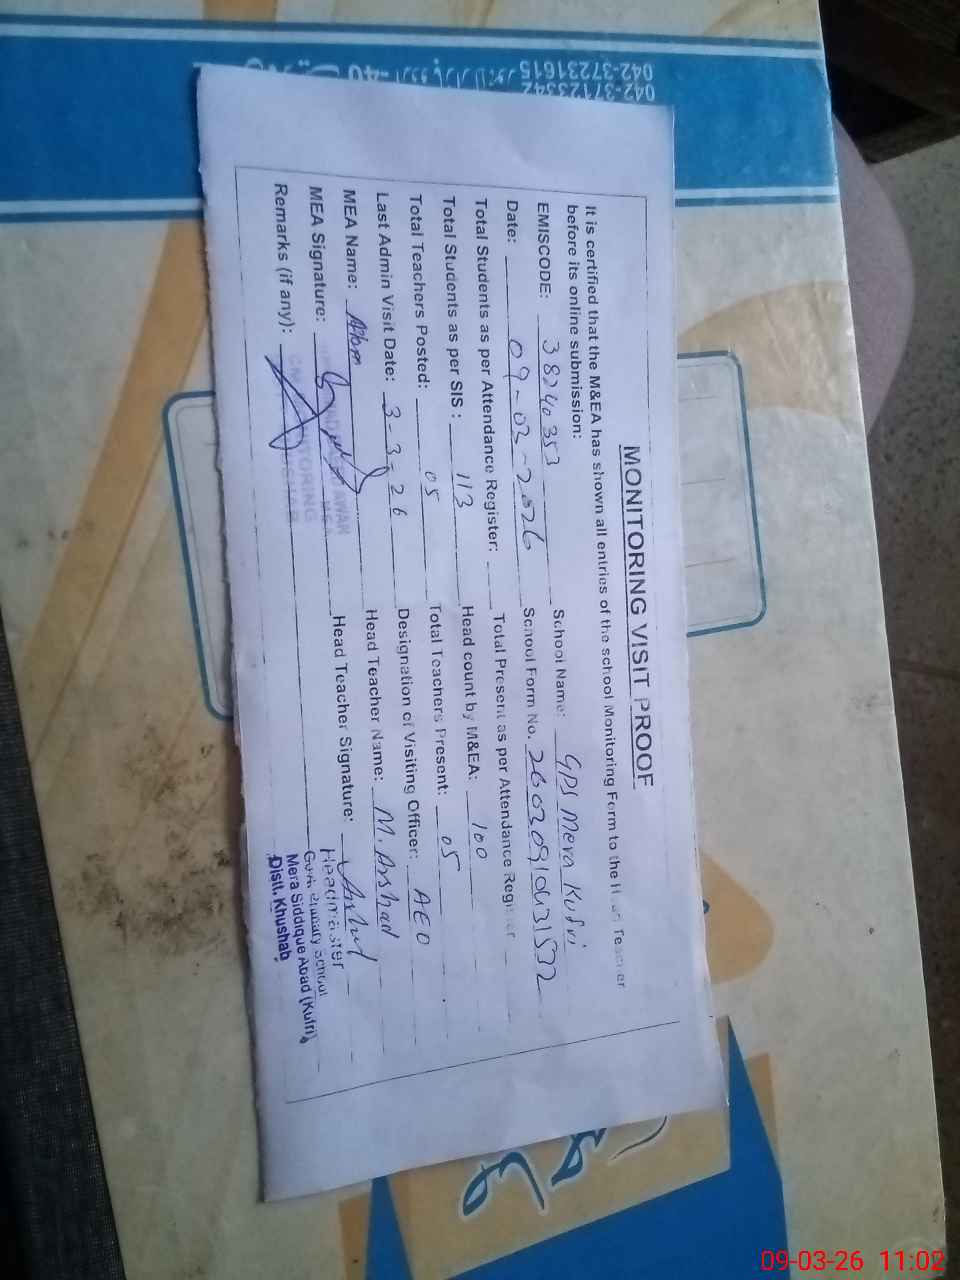 MONITORING VISIT PROOF
It is certified that the M&EA has shown all entries of the school Monitoring Form to the Head Teacher
before its online submission:
EMISCODE: 38240353 School Name: GPS Mera Kufri
Date: 09-03-2026 School Form No.
Total Students as per Attendance Register: Total Present as per Attendance Register
Total Students as per SIS : 113 Head count by M&EA: 100
Total Teachers Posted: 05 Total Teachers Present: 05
Last Admin Visit Date: 3-3-26 Designation of Visiting Officer: AEO
MEA Name: Head Teacher Name: M. Arshad
MEA Signature: Head Teacher Signature: Arshad
Remarks (if any):
Headmaster
Govt. Primary School
Mera Siddique Abad (Kufri)
Distt. Khushab
042-37231615
042-37123342
09-03-26 11:02